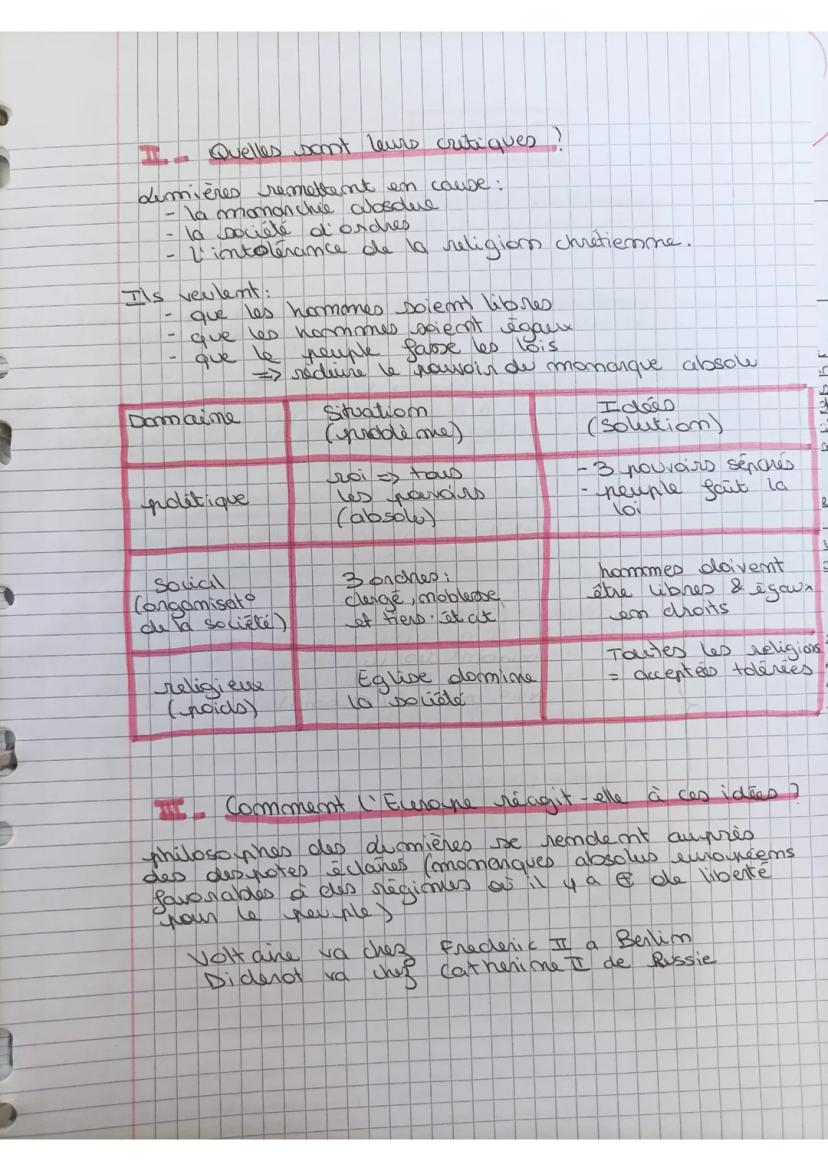 II - Quelles sont leurs critiques ?
Lumières remettent en cause :
- la monarchie absolue
- la société d'ordres
- l'intolérance de la religion chrétienne.
Ils veulent :
- que les hommes soient libres
- que les hommes soient égaux
- que le peuple fasse les lois
=> réduire le pouvoir du monarque absolu
Domaine
Situation
(problème)
Idées
(solution)
politique
roi => tous
les pouvoirs
(absolu)
- 3 pouvoirs séparés
- peuple fait la
loi
social
(organisat°
de la société)
3 ordres :
clergé, noblesse
et tiers-état
hommes doivent
être libres & égaux
en droits
religieux
(poids)
Eglise domine
la société
Toutes les religions
= acceptées tolérées
III - Comment l'Europe réagit-elle à ces idées ?
philosophes des Lumières se rendent auprès
des despotes éclairés (monarques absolus européens
favorables à des régimes où il y a ⊕ de liberté
pour le peuple)
Voltaire va chez Frederic II a Berlin
Diderot va chez Catherine II de Russie